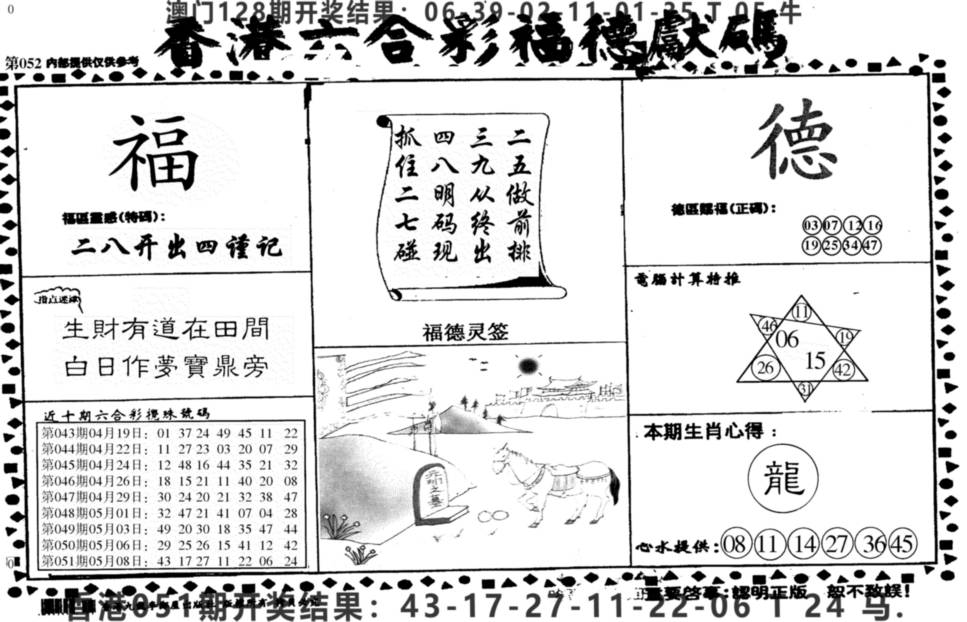 澳门128期开奖结果：06-39-02-11-01-35 T 05 牛
香港六合彩福德獻碼
第052 内部提供仅供参考
福
福區靈感(特碼)：
二八开出四谨记
指点迷津
生財有道在田間
白日作夢寶鼎旁
近十期六合彩攪珠號碼
第043期04月19日：01 37 24 49 45 11 22
第044期04月22日：11 27 23 03 20 07 29
第045期04月24日：12 48 16 44 35 21 32
第046期04月26日：18 15 21 11 40 20 08
第047期04月29日：30 24 20 21 32 38 47
第048期05月01日：32 47 21 41 07 04 28
第049期05月03日：49 20 30 18 35 47 44
第050期05月06日：29 25 26 15 41 12 42
第051期05月08日：43 17 27 11 22 06 24
二五做前排
三九从终出
四八明码现
抓住二七碰
福德灵签
德
德區賜福(正碼)：
03 07 12 16
19 25 34 47
電腦計算特推
11
46 19
06
15
26 42
31
本期生肖心得：
龍
心水提供：08 11 14 27 36 45
重要啓事：認明正版 恕不致誤！
香港051期开奖结果：43-17-27-11-22-06 T 24 马.